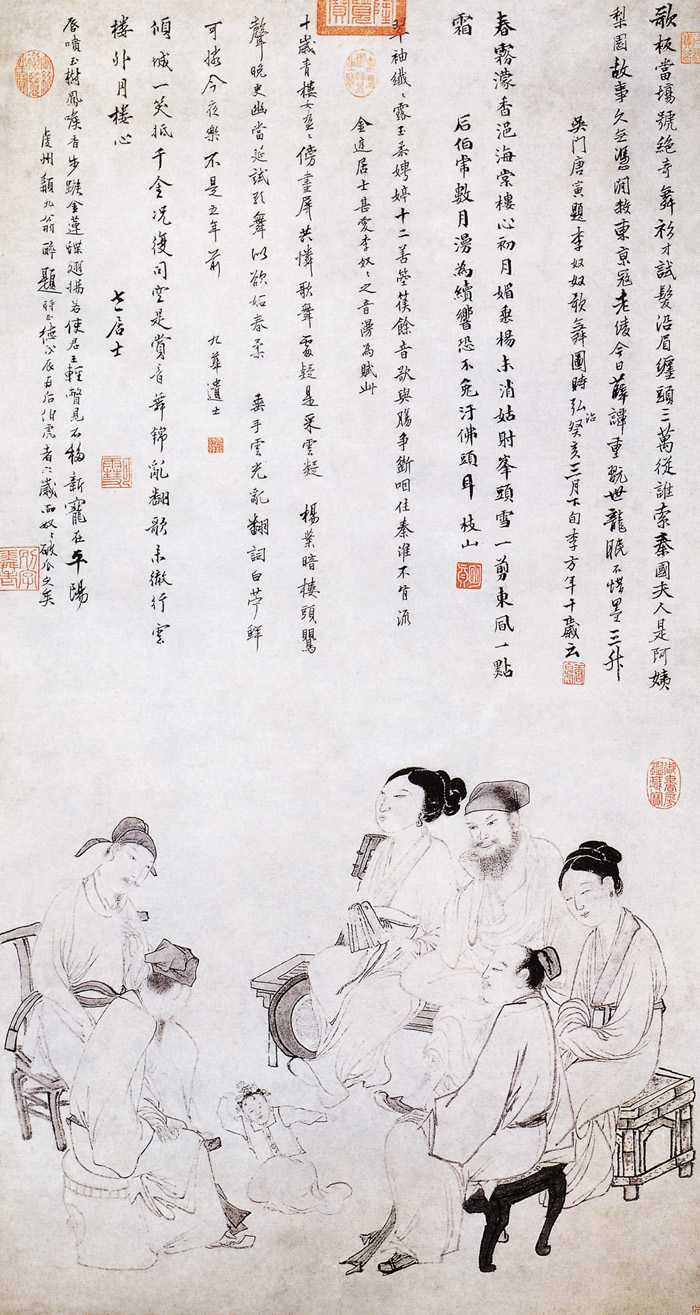 歌板當場號絕奇舞衫才試髮沿眉纏頭三萬從誰索秦國夫人是阿姨
梨園故事久無憑東京今日薛譚重玩世龍眠不惜墨三升
吳門唐寅題李奴奴歌舞圖時弘治癸亥三月下旬李方年十歲云
春霧濛香浥海棠樓心初月媚垂楊未消姑射峯頭雪一剪東風一點
霜 后伯常數月漫為續響恐不免汙佛頭耳 枝山
翠袖纖纖露玉柔娉婷十二善箜篌餘音欲與腸爭斷咽住秦淮不肯流
居士甚愛李奴奴之音漫為賦此
十歲青樓女盈盈傍畫屏共憐歌舞處疑是采雲凝 楊葉暗樓頭鶯
聲晚更幽當延試歌舞似欲妬春柔 垂手雲光亂翻詞白苧鮮
可據今夜樂不是五年前 九華遺士
傾城一笑抵千金況復同是賞音舞錦亂翻歌未徹行雲
樓外月樓心 居士
唇噴玉樹鳳喉香步金蓮蝶翅揚若使君王輕瞥見不移新寵在平陽
虔州九翁醉題 時正德戊辰伯虎者歲而奴奴破瓜之矣